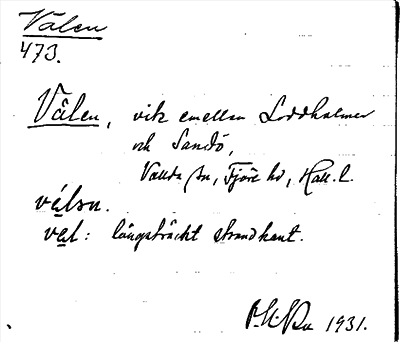 Vålen
473.
Vålen, vik emellan Loddholmen
och Sandö,
Vallda sn, Fjäre hd, Hall. l.
vålsn.
val: långsträckt strandkant.
1931.